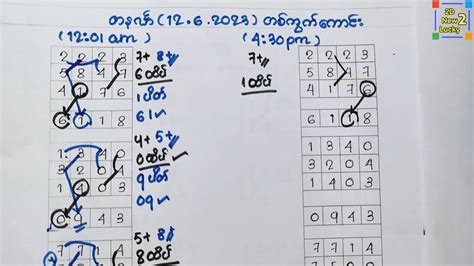 တနင်္လာ (12.6.2023) တစ်ကွက်ကောင်း
(12:01am) (4:30pm)
2D
New 2
Lucky
2 2 2 3
5 8 4 7
4 1 7 6
6 1 1 8
7+ 8+
6 ထိပ်
1 ပိတ်
61 ✓
1 3 4 0
3 2 0 4
1 4 0 3
0 9 4 3
4+ 5+
0 ထိပ် ✓
9 ပိတ်
09 ✓
7 7 1 4
5+ 8+
8 ထိပ်
2 2 2 3
5 8 4 7
4 1 7 6
6 1 1 8
7+
1 ထိပ်
1 3 4 0
3 2 0 4
1 4 0 3
0 9 4 3
7 7 1 4